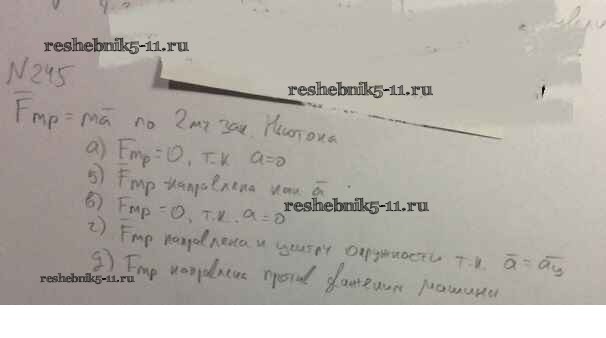 reshebnik5-11.ru
N245
reshebnik5-11.ru
F̅тр = ma̅ по 2му зак. Ньютона
а) Fтр = 0, т.к a=0
б) F̅тр направлена как a̅
в) Fтр = 0, т.к. a = 0
reshebnik5-11.ru
г) F̅тр направлена к центру окружности т.к. a̅ = a̅ц
reshebnik5-11.ru
д) F̅тр направлена против движения машины